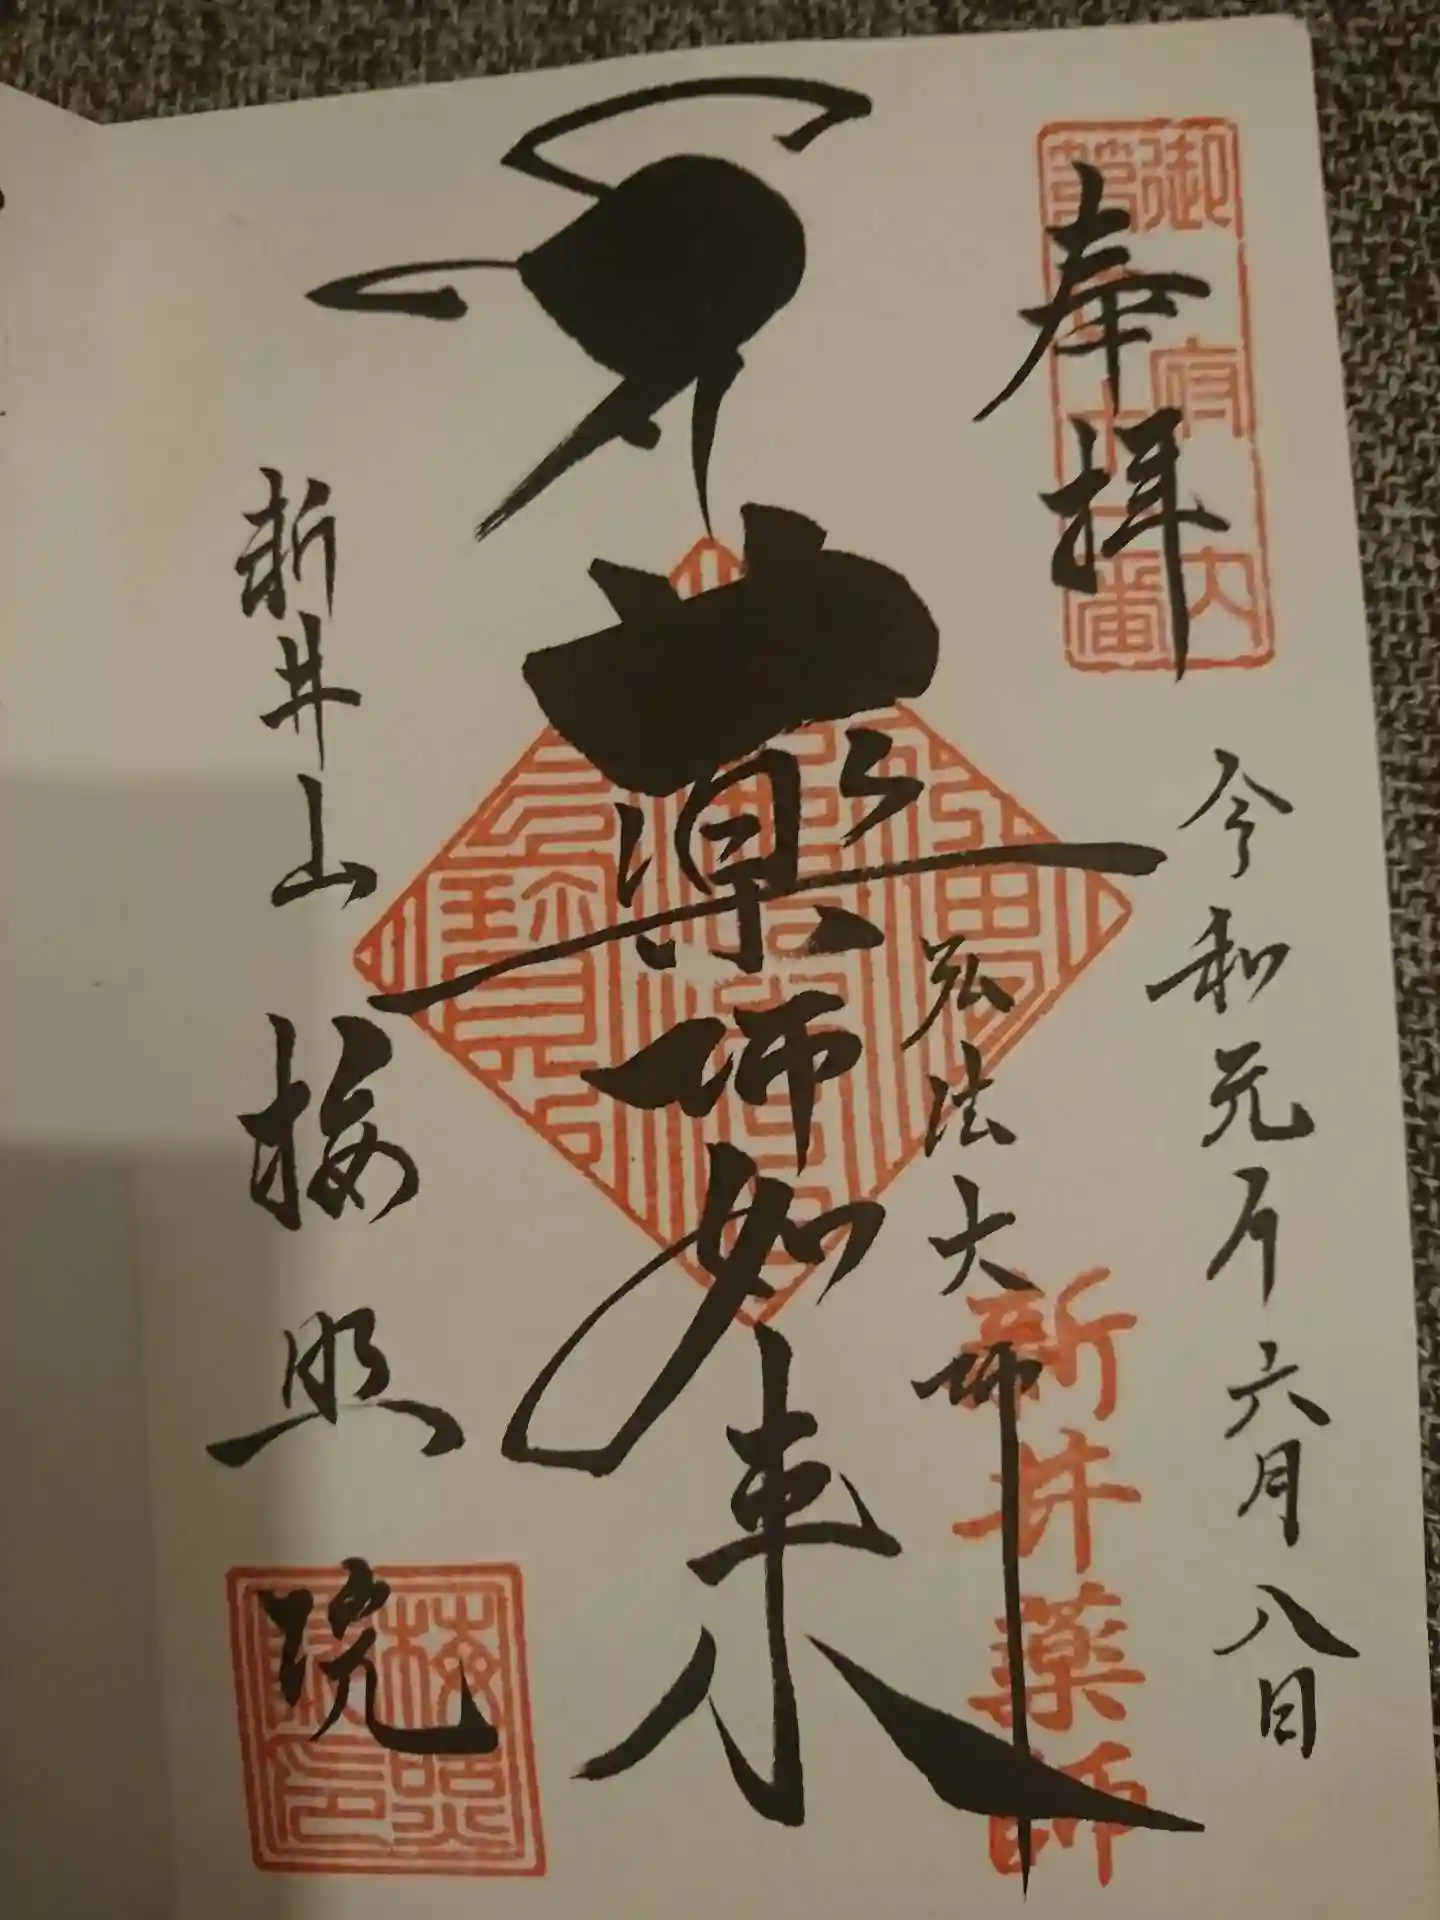 奉拝
御府内
第七十一番
令和元年六月八日
弘法大師
新井薬師
薬師如来
新井山
梅照院
梅照院印